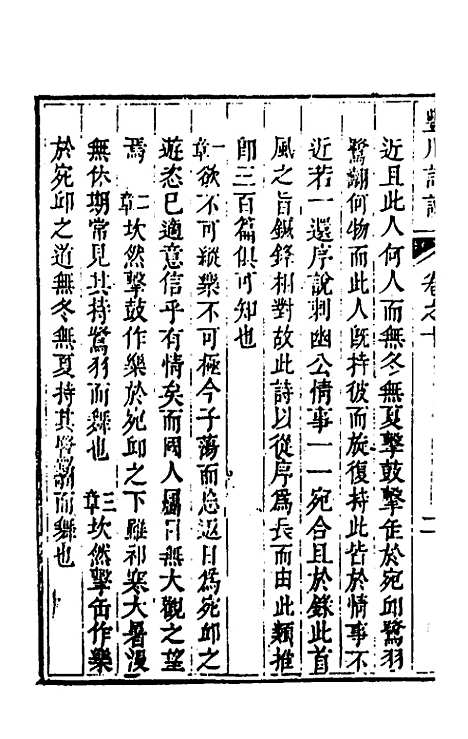 豐川詩說 卷之十 二
近且此人何人而無冬無夏擊鼓擊缶於宛邱鷺羽
鷺翿何物而此人旣持彼而旋復持此皆於情事不
近若一還序說刺幽公情事一一宛合且於錄此首
風之旨鍼鋒相對故此詩以從序爲長而由此類推
卽三百篇俱可知也
一章欲不可縱樂不可極今子蕩而忘返日爲宛邱之
遊忞已適意信乎有情矣而國人屬目無大觀之望
焉 二章坎然擊鼓作樂於宛邱之下雖祁寒大暑漫
無休期常見其持鷺羽而舞也 三章坎然擊缶作樂
於宛邱之道無冬無夏持其鷺翿而舞也